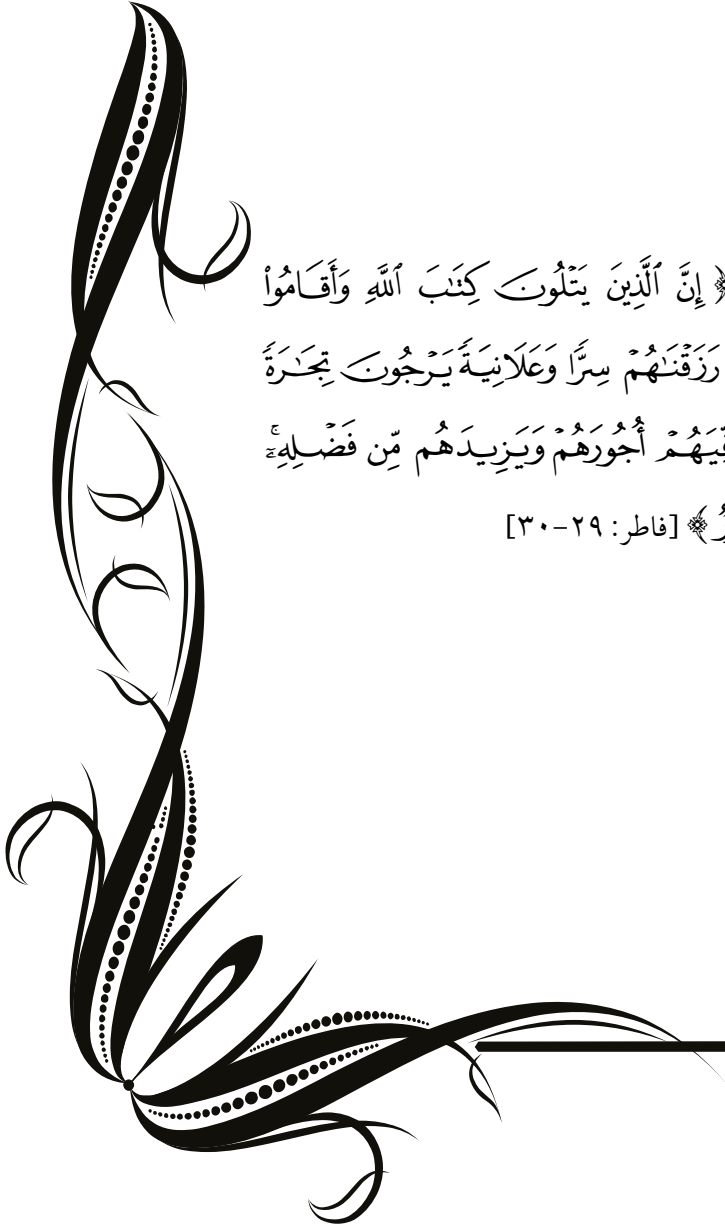 ﴿ إِنَّ ٱلَّذِينَ يَتۡلُونَ كِتَٰبَ ٱللَّهِ وَأَقَامُواْ
رَزَقۡنَٰهُمۡ سِرّٗا وَعَلَانِيَةٗ يَرۡجُونَ تِجَٰرَةٗ
أُجُورَهُمۡ وَيَزِيدَهُم مِّن فَضۡلِهِۦٓۚ
﴾ [فاطر: ٢٩-٣٠]